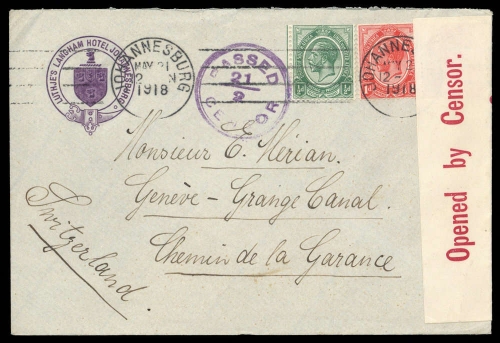 LUTHJE'S LANGHAM HOTEL JOHANNESBURG
JOHANNESBURG
MAY 21
12 N
1918
PASSED
21
2
CENSOR
½d
½d
1d
JOHANNES
MAY
12
1918
Monsieur E. Mérian.
Genève - Grange Canal.
Chemin de la Garance.
Switzerland.
Opened by Censor.